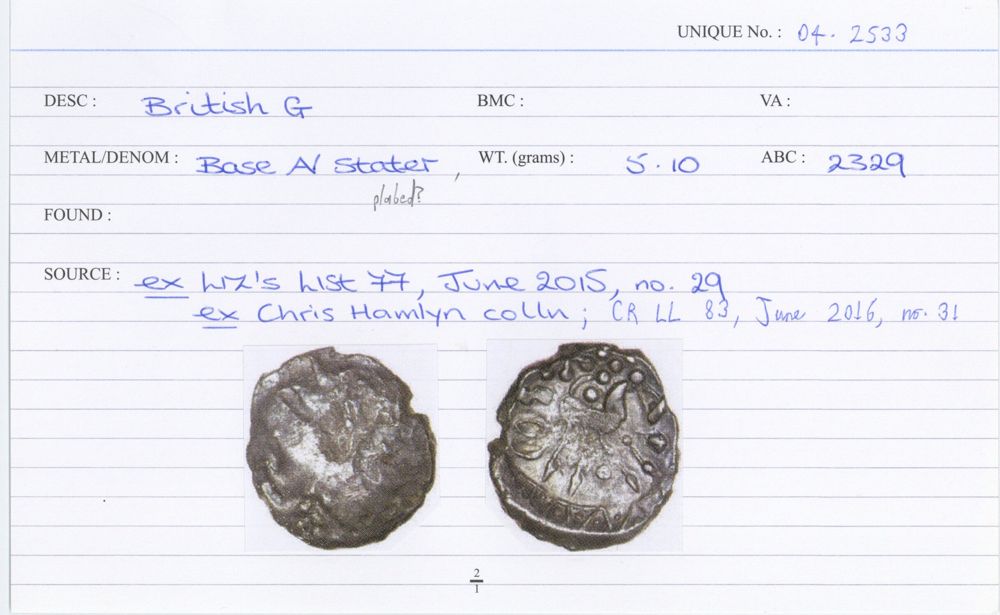 UNIQUE No. : 04. 2533
DESC : British G BMC : VA :
METAL/DENOM : Base AV Stater, WT. (grams) : 5.10 ABC : 2329
plated?
FOUND :
SOURCE : ex Liz's List 77, June 2015, no. 29
ex Chris Hamlyn colln ; CR LL 83, June 2016, no. 31
2
1